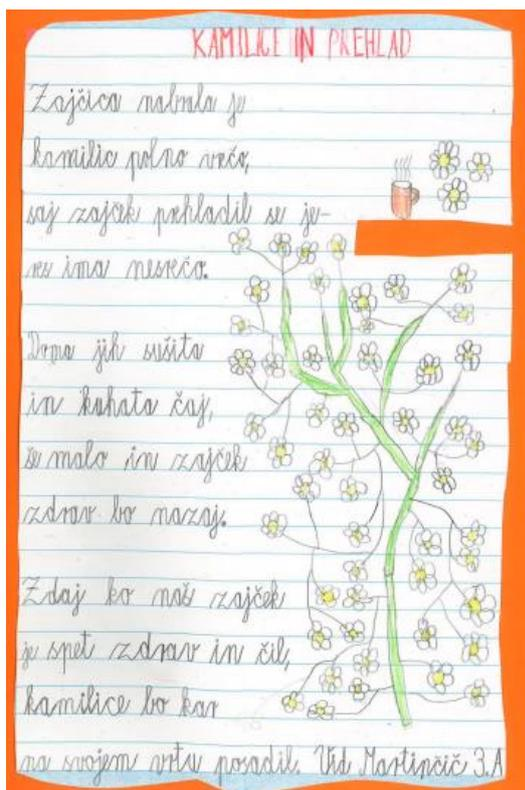 KAMILICE IN PREHLAD
Zajčica nabrala je
kamilic polno vrečo,
saj zajček prehladil se je-
res ima nesrečo.
Doma jih sušita
in kuhata čaj,
še malo in zajček
zdrav bo nazaj.
Zdaj ko naš zajček
je spet zdrav in čil,
kamilice bo kar
na svojem vrtu posadil. Vid Martinčič 3.A